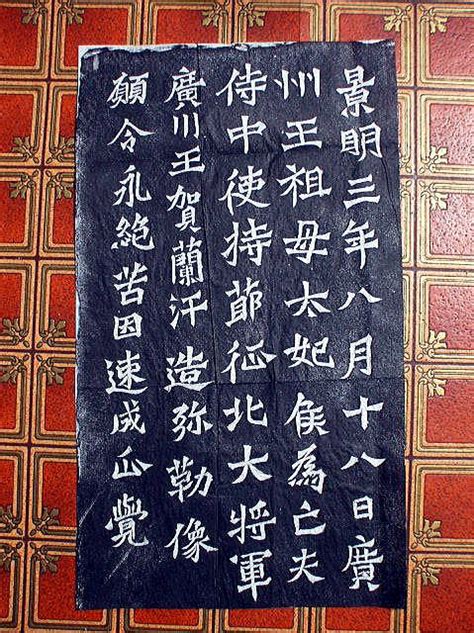 景明三年八月十八日廣
川王祖母太妃侯為亡夫
侍中使持莭征北大將軍
廣川王賀蘭汗造弥勒像
願令永絶苦因速成㱏覺